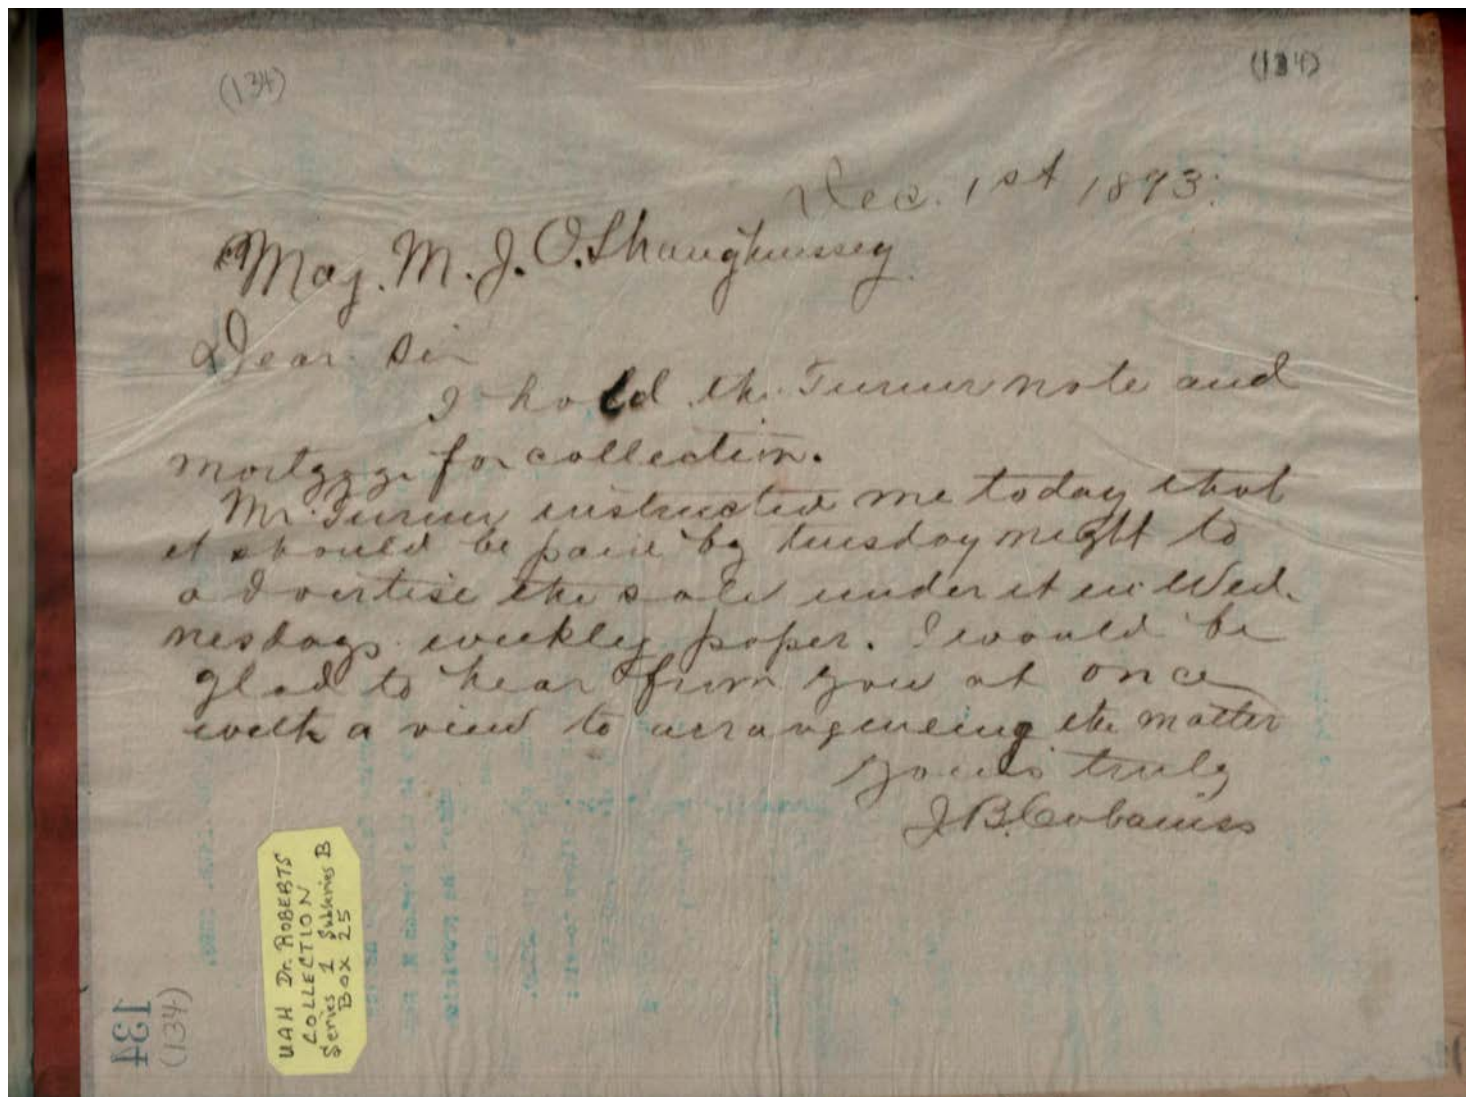 (134)
(134)
Dec. 1st 1893.
Maj. M. J. O.Shaughnessey
Dear Sir
I hold the Turner note and
mortgage for collection.
Mr. Turner instructed me today that
it should be paid by tuesday night to
advertise the sale under it in Wed-
nesdays weekly paper. I would be
glad to hear from you at once
with a view to arrangeing the matter
Yours truly
J B. Cabaniss
UAH Dr. ROBERTS
COLLECTION
Series 1 Subseries B
BOX 25
134
(134)